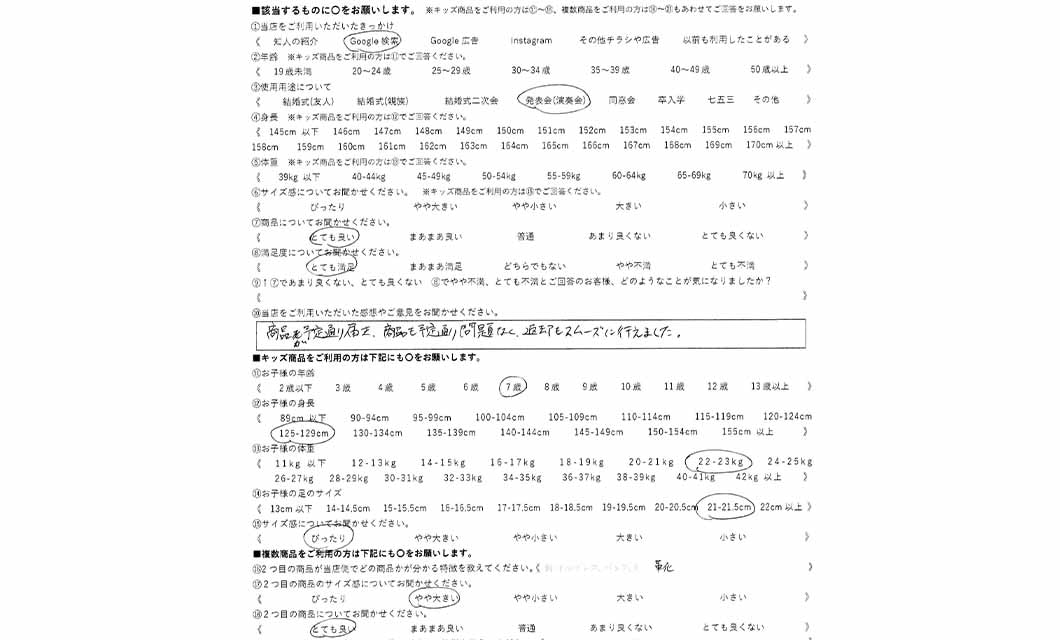 ■該当するものに〇をお願いします。 ※キッズ商品をご利用の方は⑪~⑮、複数商品をご利用の方は⑯~㉑もあわせてご回答をお願いします。
①当店をご利用いただいたきっかけ
《 知人の紹介 Google 検索 Google 広告 Instagram その他チラシや広告 以前も利用したことがある 》
②年齢 ※キッズ商品をご利用の方は⑪でご回答ください。
《 19歳未満 20~24歳 25~29歳 30~34歳 35~39歳 40~49歳 50歳以上 》
③使用用途について
《 結婚式(友人) 結婚式(親族) 結婚式二次会 発表会(演奏会) 同窓会 卒入学 七五三 その他 》
④身長 ※キッズ商品をご利用の方は⑫でご回答ください。
《 145cm 以下 146cm 147cm 148cm 149cm 150cm 151cm 152cm 153cm 154cm 155cm 156cm 157cm
158cm 159cm 160cm 161cm 162cm 163cm 164cm 165cm 166cm 167cm 168cm 169cm 170cm 以上 》
⑤体重 ※キッズ商品をご利用の方は⑬でご回答ください。
《 39kg 以下 40-44kg 45-49kg 50-54kg 55-59kg 60-64kg 65-69kg 70kg 以上 》
⑥サイズ感についてお聞かせください。 ※キッズ商品をご利用の方は⑮でご回答ください。
《 ぴったり やや大きい やや小さい 大きい 小さい 》
⑦商品についてお聞かせください。
《 とても良い まあまあ良い 普通 あまり良くない とても良くない 》
⑧満足度についてお聞かせください。
《 とても満足 まあまあ満足 どちらでもない やや不満 とても不満 》
⑨↑⑦であまり良くない、とても良くない ⑧でやや不満、とても不満とご回答のお客様、どのようなことが気になりましたか?
《 》
⑩当店をご利用いただいた感想やご意見をお聞かせください。
商品が予定通り届き、商品も予定通り問題なく、返却もスムーズに行えました。
■キッズ商品をご利用の方は下記にも〇をお願いします。
⑪お子様の年齢
《 2歳以下 3歳 4歳 5歳 6歳 7歳 8歳 9歳 10歳 11歳 12歳 13歳以上 》
⑫お子様の身長
《 89cm 以下 90-94cm 95-99cm 100-104cm 105-109cm 110-114cm 115-119cm 120-124cm
125-129cm 130-134cm 135-139cm 140-144cm 145-149cm 150-154cm 155cm 以上 》
⑬お子様の体重
《 11kg 以下 12-13kg 14-15kg 16-17kg 18-19kg 20-21kg 22-23kg 24-25kg
26-27kg 28-29kg 30-31kg 32-33kg 34-35kg 36-37kg 38-39kg 40-41kg 42kg 以上 》
⑭お子様の足のサイズ
《 13cm 以下 14-14.5cm 15-15.5cm 16-16.5cm 17-17.5cm 18-18.5cm 19-19.5cm 20-20.5cm 21-21.5cm 22cm 以上 》
⑮サイズ感についてお聞かせください。
《 ぴったり やや大きい やや小さい 大きい 小さい 》
■複数商品をご利用の方は下記にも〇をお願いします。
⑯2つ目の商品が当店側でどの商品かが分かる特徴を教えてください。《 革靴 》
⑰2つ目の商品のサイズ感についてお聞かせください。
《 ぴったり やや大きい やや小さい 大きい 小さい 》
⑱2つ目の商品についてお聞かせください。
《 とても良い まあまあ良い 普通 あまり良くない とても良くない 》